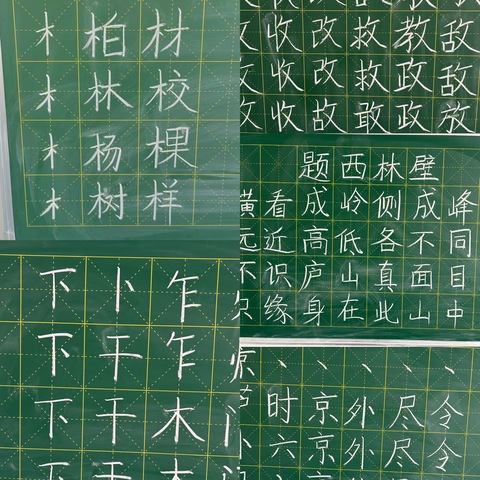 木 柏 材
木 林 校
木 杨 棵
木 树 样
收 改 救 教 敌
收 改 救 政 敌
收 故 敢 政 放
题西林壁
横看成岭侧成峰
远近高低各不同
不识庐山真面目
只缘身在此山中
下 卜 乍
下 干 乍
下 干 木
下 干 木
京 丶 丶 丶 丶
时 京 外 尽 令
六 京 外 尽 令